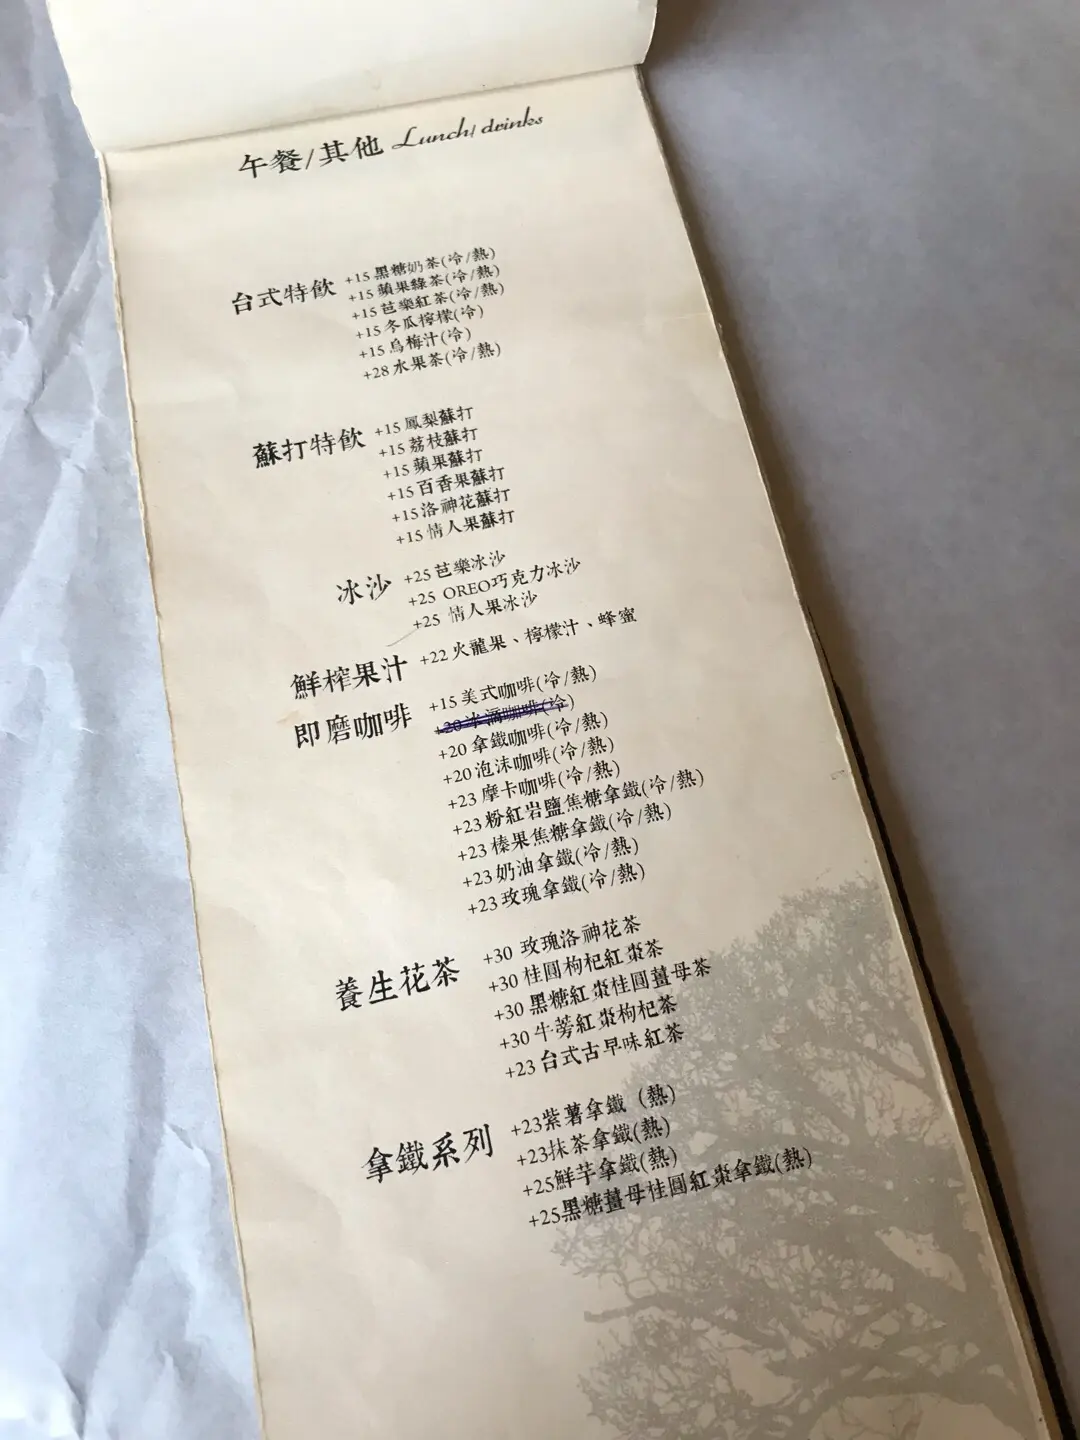 午餐/其他 Lunch/ drinks
台式特飲 +15 黑糖奶茶(冷/熱)
+15 蘋果綠茶(冷/熱)
+15 芭樂紅茶(冷/熱)
+15 冬瓜檸檬(冷)
+15 烏梅汁(冷)
+28 水果茶(冷/熱)
蘇打特飲 +15 鳳梨蘇打
+15 荔枝蘇打
+15 蘋果蘇打
+15 百香果蘇打
+15 洛神花蘇打
+15 情人果蘇打
冰沙 +25 芭樂冰沙
+25 OREO巧克力冰沙
+25 情人果冰沙
鮮榨果汁 +22 火龍果、檸檬汁、蜂蜜
即磨咖啡 +15 美式咖啡(冷/熱)
+20 冰滴咖啡(冷)
+20 拿鐵咖啡(冷/熱)
+20 泡沫咖啡(冷/熱)
+23 摩卡咖啡(冷/熱)
+23 粉紅岩鹽焦糖拿鐵(冷/熱)
+23 榛果焦糖拿鐵(冷/熱)
+23 奶油拿鐵(冷/熱)
+23 玫瑰拿鐵(冷/熱)
養生花茶 +30 玫瑰洛神花茶
+30 桂圓枸杞紅棗茶
+30 黑糖紅棗桂圓薑母茶
+30 牛蒡紅棗枸杞茶
+23 台式古早味紅茶
拿鐵系列 +23紫薯拿鐵 (熱)
+23抹茶拿鐵(熱)
+25鮮芋拿鐵(熱)
+25黑糖薑母桂圓紅棗拿鐵(熱)